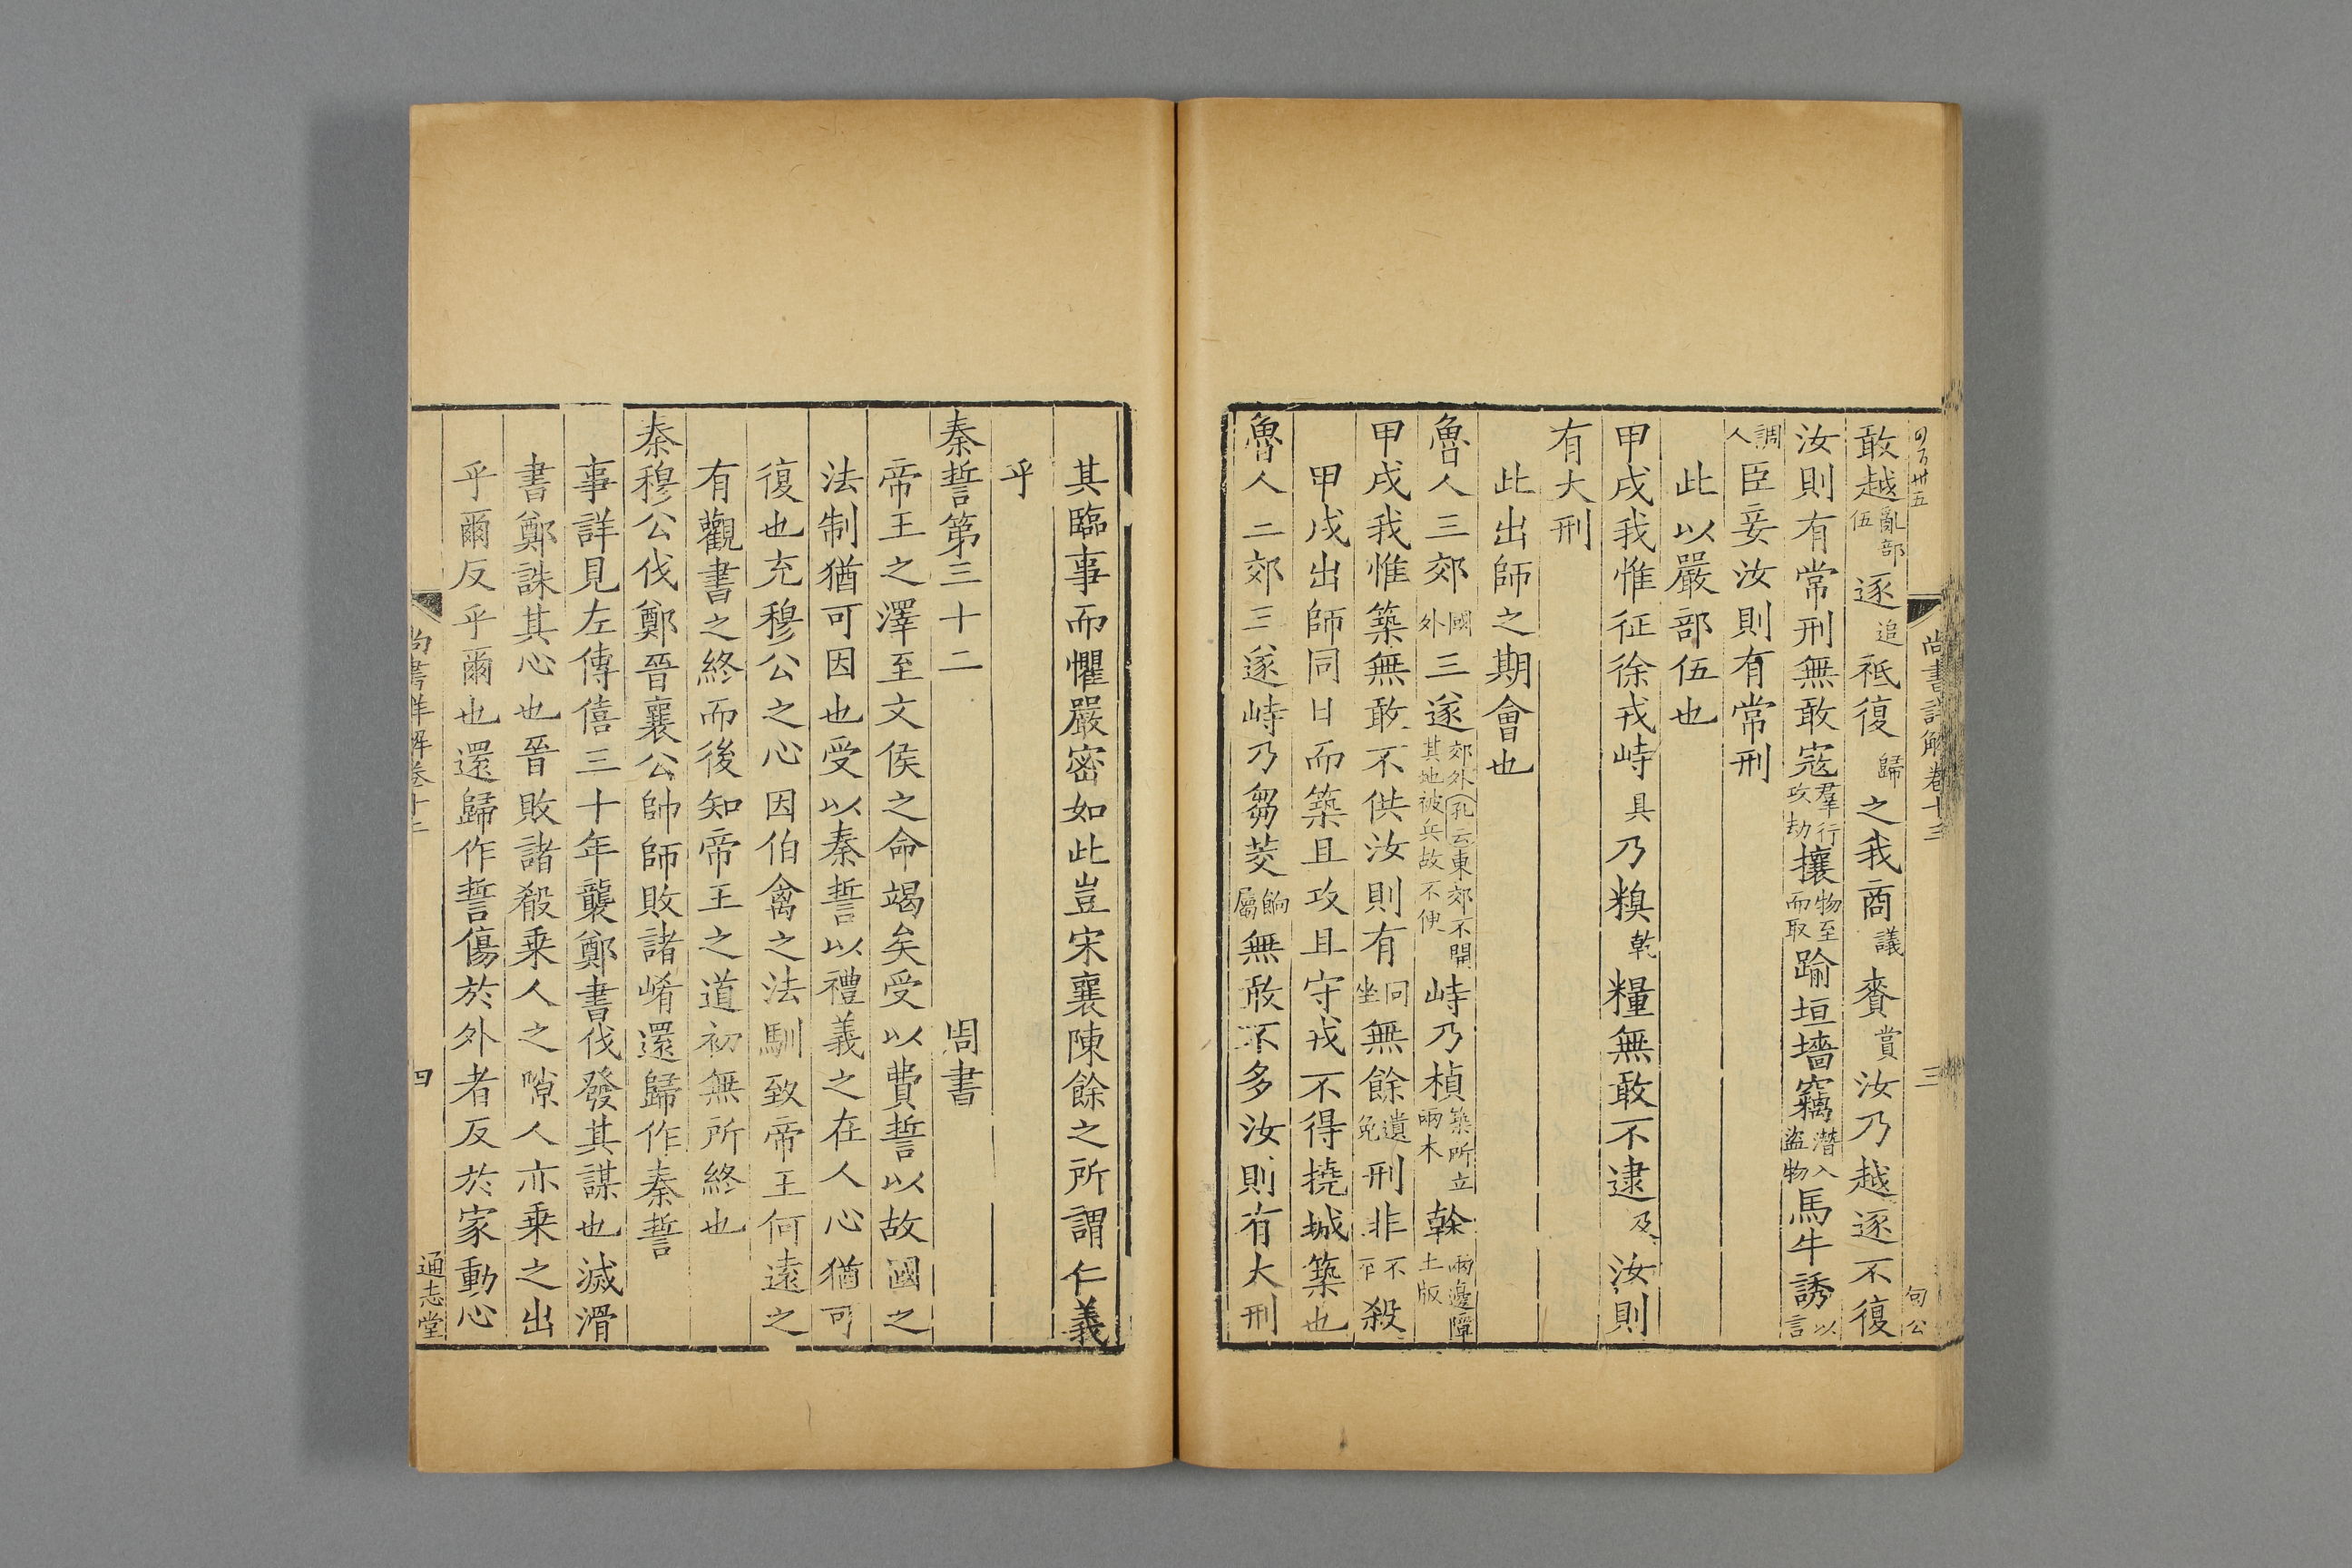 尚書詳解卷十三
三
敢越亂部伍逐追祗復歸之我商議賚賞汝乃越逐不復
汝則有常刑無敢寇羣行攻劫攘物至而取踰垣墻竊潛入盜物馬牛誘以言
調人臣妾汝則有常刑
此以嚴部伍也
甲戌我惟征徐戎峙具乃糗乾糧無敢不逮及汝則
有大刑
此出師之期會也
魯人三郊國外三遂郊外孔云東郊不開其地被兵故不使峙乃楨築所立兩木榦兩邊障土版
甲戌我惟築無敢不供汝則有同坐無餘遺免刑非不殺
甲戌出師同日而築且攻且守戎不得撓城築也
魯人三郊三遂峙乃芻茭餉屬無敢不多汝則有大刑
其臨事而懼嚴密如此豈宋襄陳餘之所謂仁義
乎
秦誓第三十二 周書
帝王之澤至文侯之命竭矣受以費誓以故國之
法制猶可因也受以秦誓以禮義之在人心猶可
復也充穆公之心因伯禽之法馴致帝王何遠之
有觀書之終而後知帝王之道初無所終也
秦穆公伐鄭晉襄公帥師敗諸崤還歸作秦誓
事詳見左傳僖三十年襲鄭書伐發其謀也滅滑
書鄭誅其心也晉敗諸殽乗人之隙人亦乗之出
乎爾反乎爾也還歸作誓傷於外者反於家動心
尚書詳解卷十三
四
通志堂